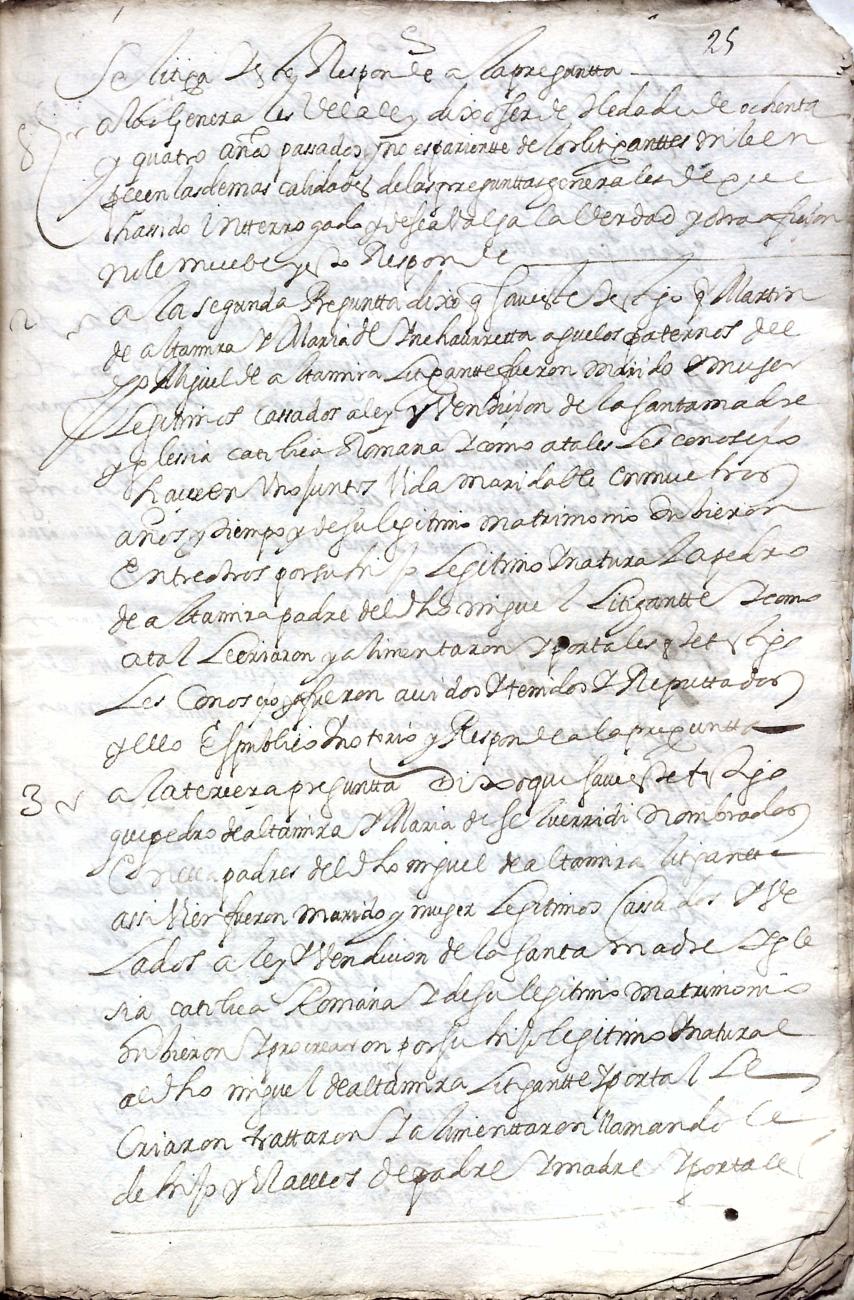 25
Se litiga y esto Responde a la pregunta
8 a las Generales de la ley dixo ser de hedad de ochenta
y quatro años passados y no es pariente de los litigantes ni le en
pecen las demas calidades de las preguntas generales de que
ha sido Interrogado y desea Valga la Verdad y otra afizion
no le muebe y esto Responde
2 a la segunda Pregunta dixo q save este testigo q Martin
de altamira y Maria de Inchaurreta aguelos paternos del
Miguel de altamira Litigante fueron marido e muger
Legitimos cassados a ley y Vendizion de la santa madre
yglessia catolica Romana y como a tales Les conoscio
hacer en Uno Juntos Vida maridable en muchos
años y tiempo y de su legitimo matrimonio hubieron
Entre otros por su hijo Legitimo y natural a pedro
de altamira padre del dho miguel Litigante y como
a tal Le criaron y alimentaron y por tales este testigo
Les Conoscio y fueron avidos y tenidos y Reputtados
y ello Es publico y notorio y Responde a la pregunta
3 a la tercera pregunta Dixo que save este testigo
que pedro de altamira y Maria de nombrados
en ella padres del dho miguel de altamira litigante
assi bien fueron marido y muger Legitimos Cassados y Ve
Lados a ley y Vendicion de la santa madre Ygle
sia catolica Romana y de su legitimo matrimonio
hubieron y procrearon por su hijo legitimo y natural
al dho miguel de altamira Litigante y por tal Le
Criaron trattaron y alimenttaron llamandole
de hijo y el a ellos de padre y madre y por tal